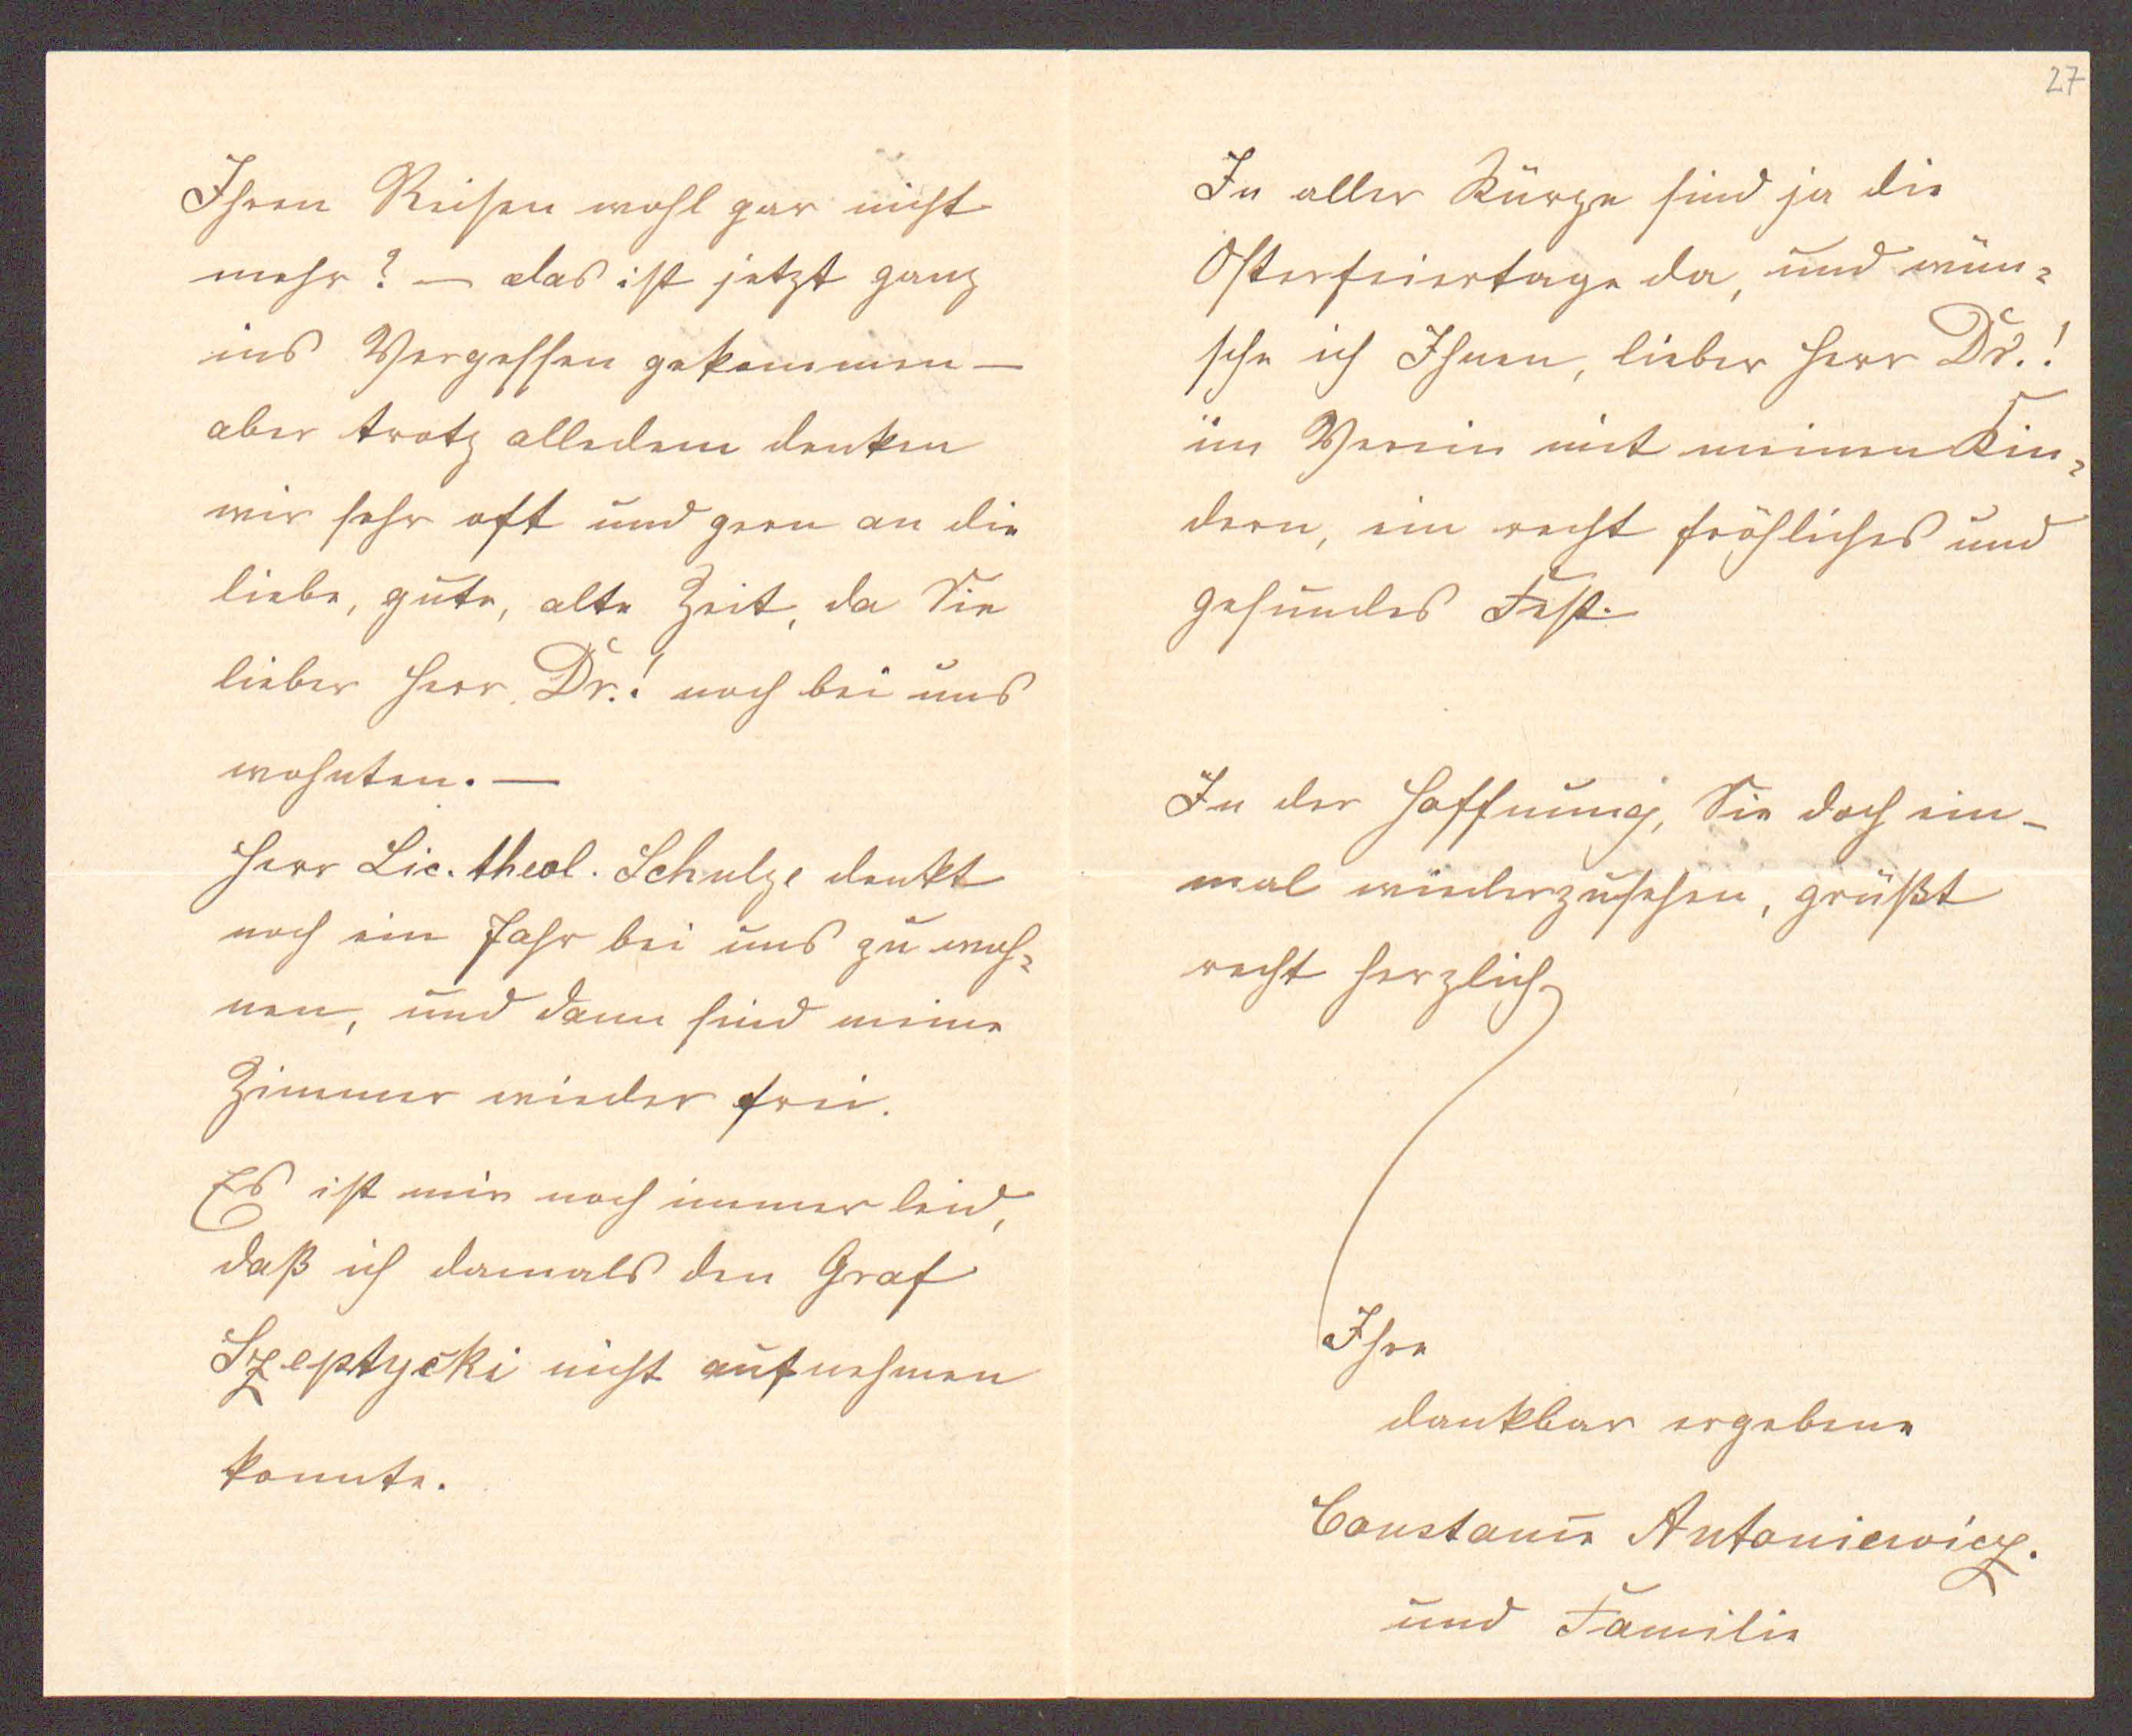 Ihren Reisen wohl gar nicht
mehr? — das ist jetzt ganz
ins Vergessen gekommen —
aber trotz alledem denken
wir sehr oft und gern an die
liebe, gute, alte Zeit, da Sie
lieber Herr Dr.! noch bei uns
wohnten. —
Herr Lic. theol. Schulze denkt
noch ein Jahr bei uns zu woh=
nen, und dann sind meine
Zimmer wieder frei.
Es ist mir noch immer leid,
daß ich damals den Graf
Szeptycki nicht aufnehmen
konnte.
27
In aller Kürze sind ja die
Osterfeiertage da, und wün=
sche ich Ihnen, lieber Herr Dr.!
im Verein mit meinen Kin=
dern, ein recht fröhliches und
gesundes Fest.
In der Hoffnung, Sie doch ein-
mal wiederzusehen, grüßt
recht herzlich
Ihre
dankbar ergebene
Constanze Antoniewicz.
und Familie